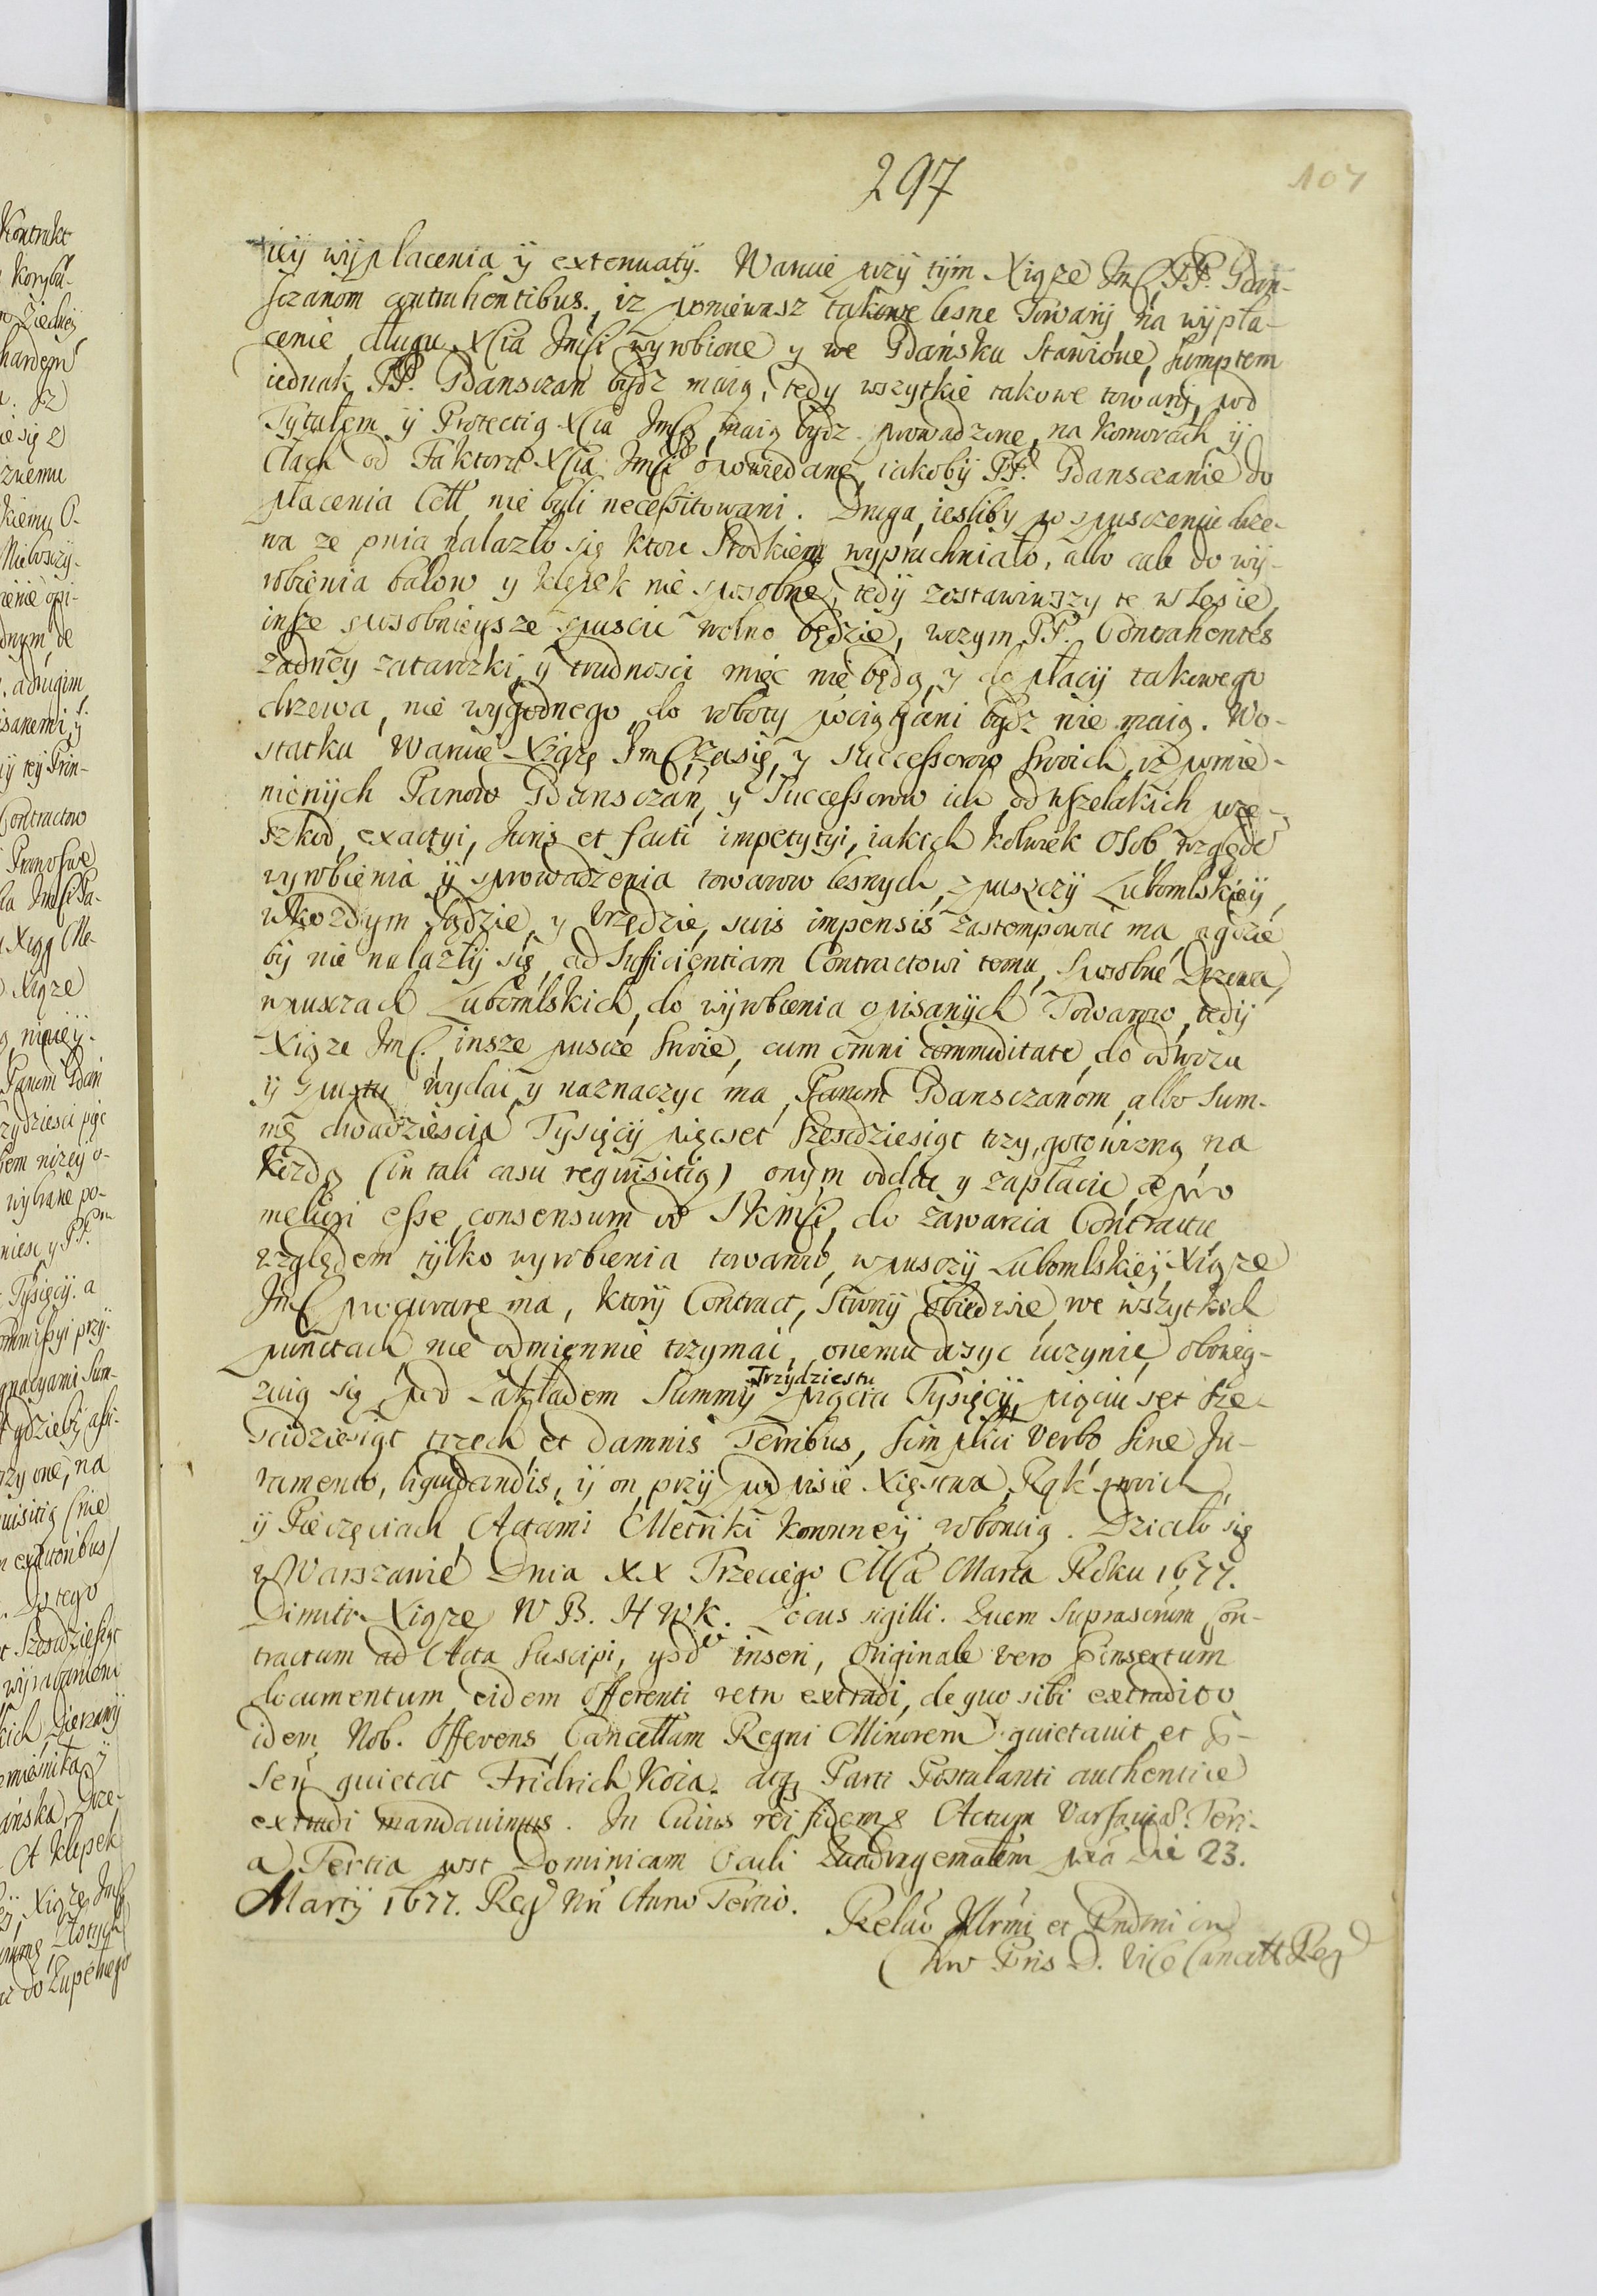 297
107
iey wypłacenia y extenuaty. Waruie przy tym Xiąże Jmć PP. Gdan-
sczanom contrahentibus, iz poniewasz takowe lesne Towary na wypła-
cenie długu Xcia Jmści wyrobione y we Gdańsku stawione, sumptem
iednak PP. Gdansczan bydz maią, tedy wszytkie takowe towary, pod
Tytułem y Protectią Xcia Jmści maią bydz prowadzone, na komorach y
Cłach od Faktora Xcia Jmści opowiedane, iakoby PP. Gdansczanie do
płacenia Cell nie byli necessitowani. Druga, iesliby po spusczeniu drze-
wa ze pnia nalazło się ktore srodkiem wypruchniało, albo cale do wy-
robienia balow y klepek nie sposobne, tedy zostawiwszy te w Lesie,
insze sposobnieysze spuscic wolno będzie, wczym PP. Contrahentes
zadney zatarczki y trudnosci miec nie będą, y do płacy takowego
drzewa, nie wygodnego do roboty pociągani bydz nie maią. Wo-
statku Waruie Xiąże Jmć zasię, y Successorow swoich, iz pomie-
nionych Panow Gdansczan, y Successorow ich od wszelakich prze-
szkod, exactyi, Juris et facti impetytyi, iakich kolwiek Osob względe
wyrobienia y sprowadzenia towarow lesnych, z puszczy Lubomlskiey,
w kozdym sądzie y Vrzędzie, suis impensis zastempowac ma, a gdzie
by nie nalazły się ad sufficientiam Contractowi temu, sposobne Drzewa,
w puszczach Lubomlskich, do wyrobienia opisanych Towarow, tedy
Xiąże Jmć insze puscze swoie, cum omni commoditate, do odwozu
y spustu wydac y naznaczyc ma, Panom Gdansczanom, albo Sum-
mę dwadziescia Tysięcy pięcset szescdziesiąt trzy, gotowizną na
kozdą (in tali casu requisitią) onym oddac y zapłacic, de pro
meliori esse consensum od JKMści, do zawarcia Contractu
względem tylko wyrobienia towarow, w pusczy Lubomlskiey, Xiąże
Jmć procurare ma, ktory Contract, Strony obiedwie we wszytkich
punctach nie odmiennie trzymac, onemu dosyc uczynic, obowią-
zuią się pod zakładem Summy Trzydziestu pięcia Tysięcy pięciu set sze-
scidziesiąt trzech et damnis Terribus, simplici verbo sine Ju-
ramento, liquidandis, y on przy podpisie Xięstwa Rąk swoich,
y Pieczęciach, Actami Metriki koronney roboruią. Działo się
w Warszawie Dnia XX Trzeciego Mca Marca Roku 1677.
Dimitr Xiąże W B. H W K. Locus sigilli. Quem suprascrium Con-
tractum ad Acta suscipi, ysd inseri, Originale vero Pinsertum
documentum eidem Offerenti retro extradi, de quo sibi extradito
idem Nob. Offerens Cancellam Regni Minorem quietavit et P-
sen quietat Fridrich Koia. atq Parti Postulanti authentice
extradi mandavimus. In Cuius rei fidem Actum Varsaviae Feri-
a Tertia post Dominicam Oculi Quadragemalem pria Die 23.
Martij 1677. Reg Nri Anno Tertio.
Relao Illrmi et Rndmi in
Chro Pris D. Vice Cancell Reg